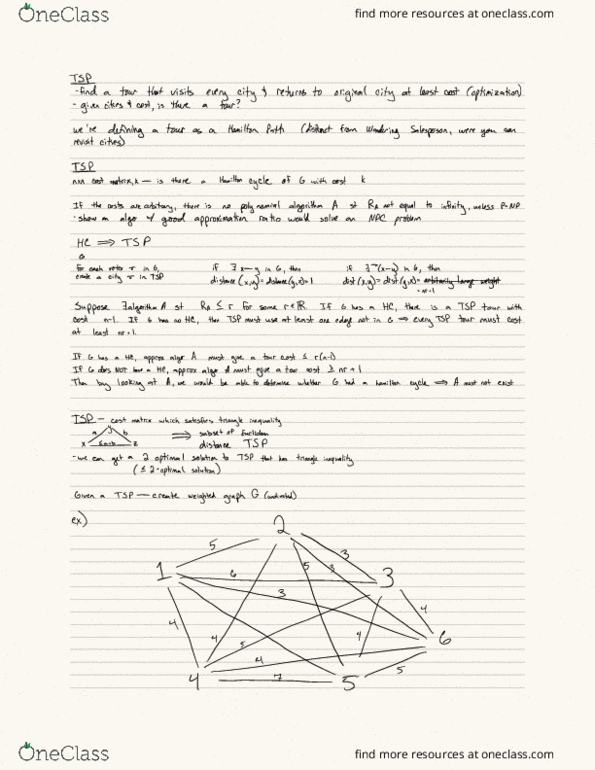 OneClass
find more resources at oneclass.com
TSP
- find a tour that visits every city & returns to original city at least cost (optimization)
- given cities & cost, is there a tour?
we're defining a tour as a Hamilton Path (distinct from Wandering Salesperson, were you can
revisit cities)
TSP
nxn cost matrix, k — is there a Hamilton cycle of G with cost k
If the costs are arbitary, there is no polynomial algorithm A st RA not equal to infinity, unless P=NP
- show an algo w/ good approximation ratio would solve an NPC problem
HC ⟹ TSP
G
for each vertex r in G,
create a city r in TSP
if ∃ x—y in G, then
distance (x,y) = distance (y,x) = 1
if ∃ ¬(x—y) in G, then
dist (x,y) = dist (y,x) = arbitrarily large weight
= nr+1
Suppose ∃ algorithm A st RA ≤ r for some r∈ℝ. If G has a HC, there is a TSP tour with
cost n-1. If G has no HC, then TSP must use at least one edge not in G ⟹ every TSP tour must cost
at least nr+1.
If G has a HC, approx algo A must give a tour cost ≤ r(n-1)
If G does NOT have a HC, approx algo A must give a tour cost ≥ nr+1
Then by looking at A, we would be able to determine whether G had a hamilton cycle ⟹ A must not exist
TSP - cost matrix which satisfies triangle inequality
a y b
x z
⟹ subset of Euclidean
distance TSP
- we can get a 2 optimal solution to TSP that has triangle inequality
(≤ 2-optimal solution)
Given a TSP — create weighted graph G (undirected)
ex)
2
5
3
1
6
5
3
3
3
4
4
6
4
5
4
4
5
4
7
5
OneClass
find more resources at oneclass.com